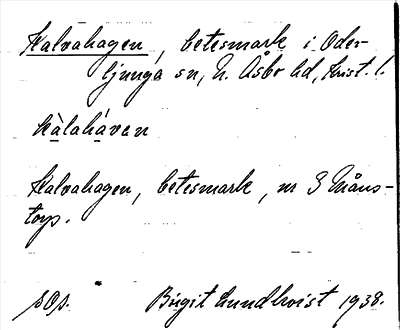 Kalvahagen, betesmark i Oder-
ljunga sn, N. Åsbo hd, Krist. l.
kàlahàven
Kalvahagen, betesmark, nr 3 Måns-
torp.
sOp. Birgit Lundkvist 1938.